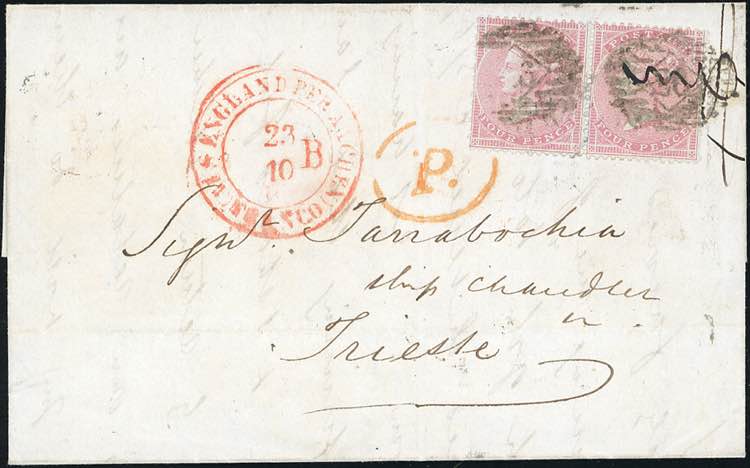 POSTAGE
FOUR PENCE
FOUR PENCE
ENGLAND PER AACHEN
FRANCO
23
10
B
P.
Sigr. Tarrabochia
ship chandler
in
Trieste